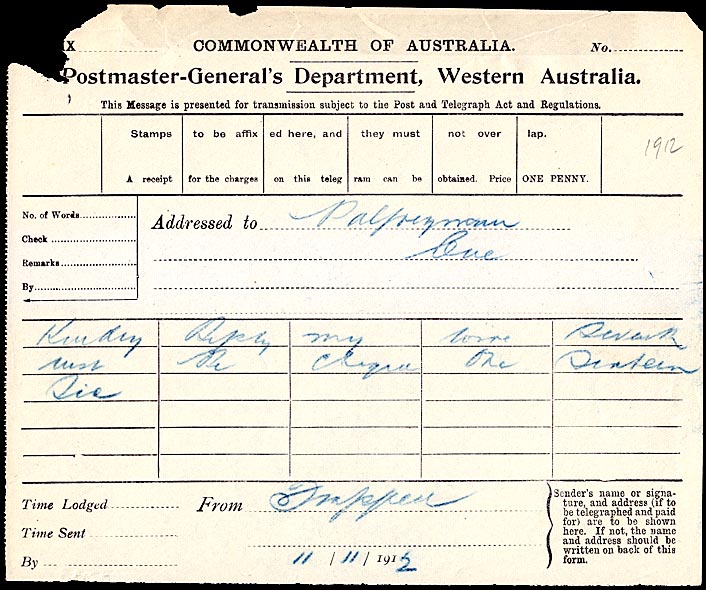 X COMMONWEALTH OF AUSTRALIA. No.
Postmaster-General's Department, Western Australia.
This Message is presented for transmission subject to the Post and Telegraph Act and Regulations.
Stamps to be affix ed here, and they must not over lap.
1912
A receipt for the charges on this teleg ram can be obtained. Price ONE PENNY.
No. of Words
Addressed to Palfreyman
Check
Cue
Remarks
By
Kindly Reply my wire Seventh
inst Re Cheque One
Six
Time Lodged
From
Time Sent
By
11 / 11 / 1912
Sender's name or signa-
ture, and address (if to
be telegraphed and paid
for) are to be shown
here. If not, the name
and address should be
written on back of this
form.